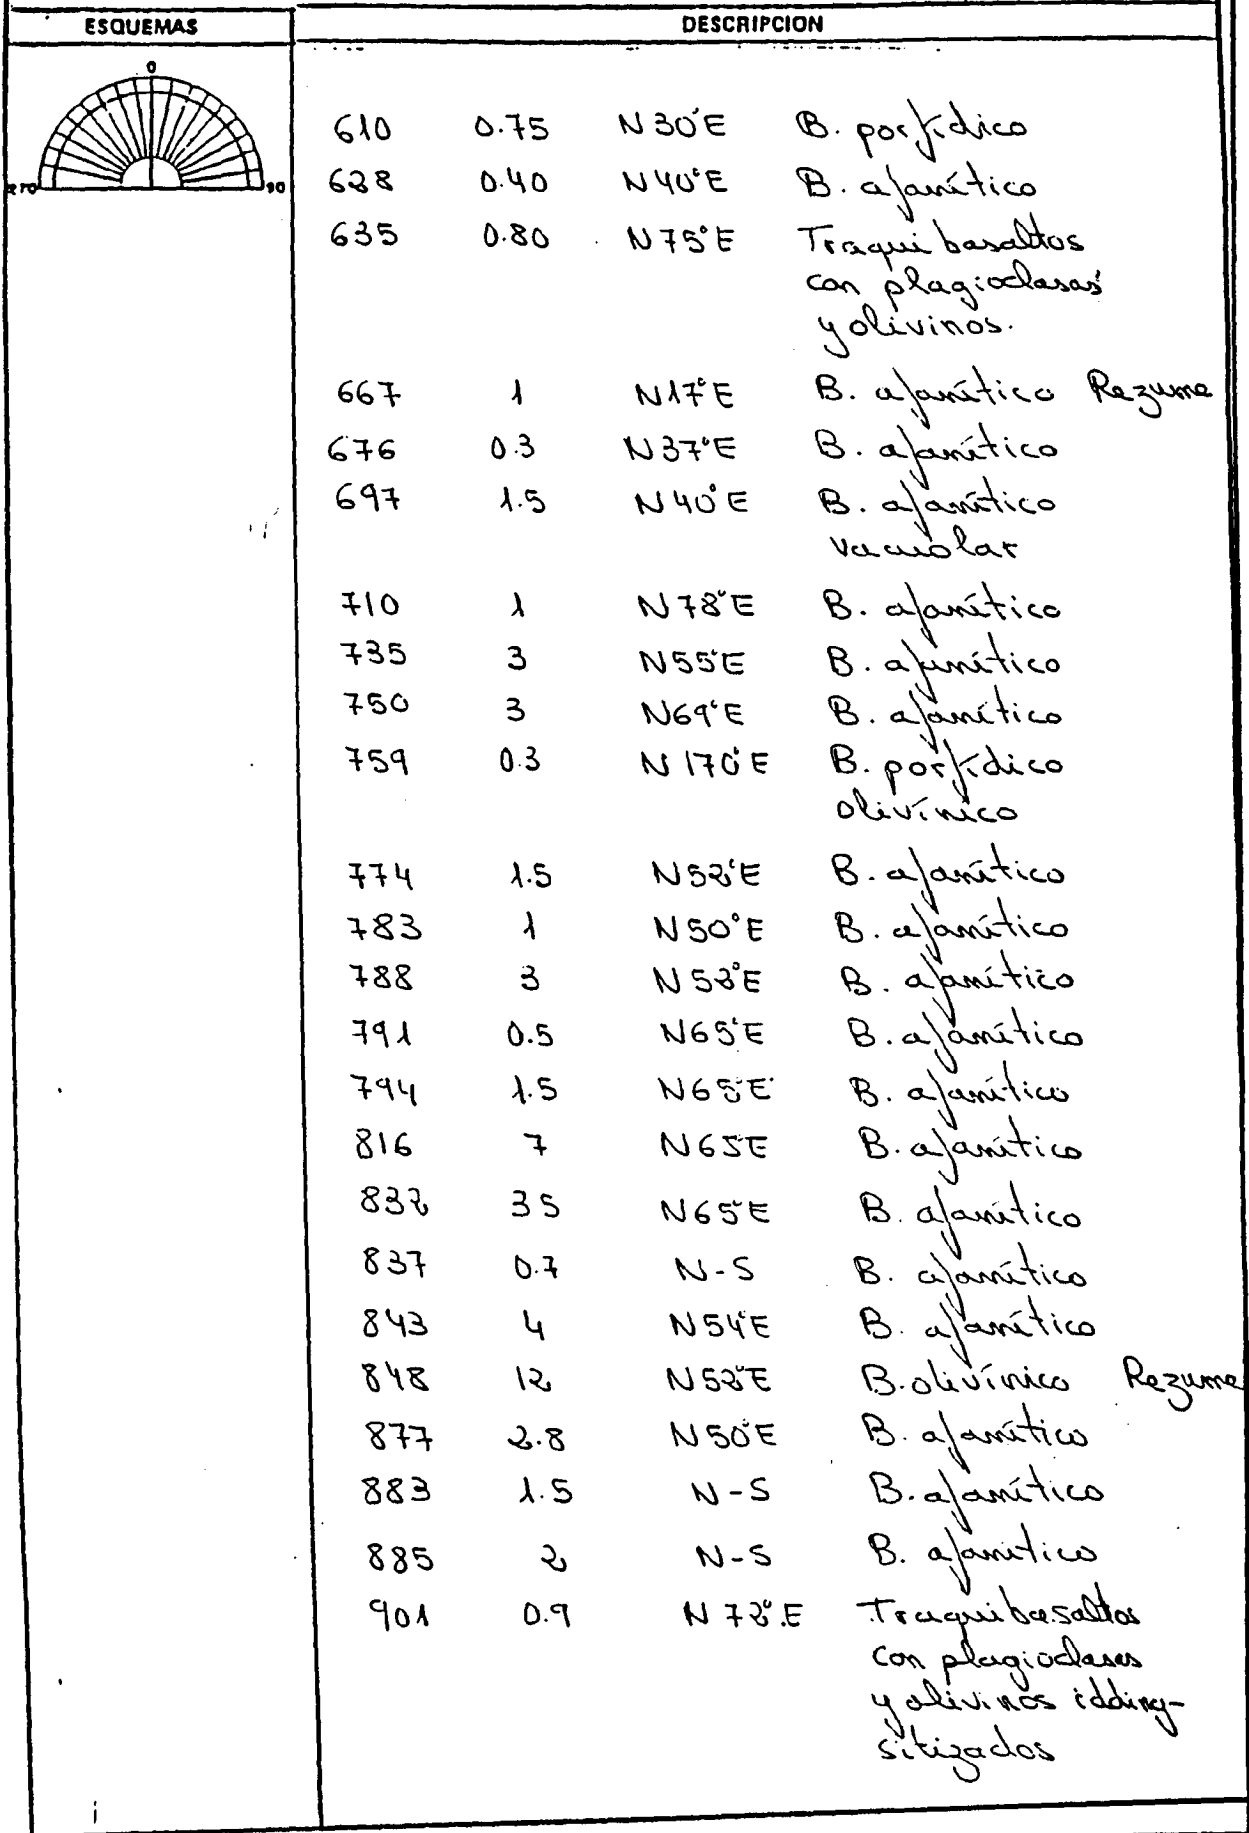 ESQUEMAS DESCRIPCION
0
270 90
610 0.75 N30°E B. porfídico
628 0.40 N40°E B. afanítico
635 0.80 N75°E Traquibasaltos
con plagioclasas
y olivinos.
667 1 N17°E B. afanítico Rezume
676 0.3 N37°E B. afanítico
697 1.5 N40°E B. afanítico
vacuolar
710 1 N78°E B. afanítico
735 3 N55°E B. afanítico
750 3 N69°E B. afanítico
759 0.3 N170°E B. porfídico
olivínico
774 1.5 N52°E B. afanítico
783 1 N50°E B. afanítico
788 3 N52°E B. afanítico
791 0.5 N65°E B. afanítico
794 1.5 N65°E B. afanítico
816 7 N65E B. afanítico
832 35 N65°E B. afanítico
837 0.7 N-S B. afanítico
843 4 N54°E B. afanítico
848 12 N52°E B. olivínico Rezume
877 2.8 N50°E B. afanítico
883 1.5 N-S B. afanítico
885 2 N-S B. afanítico
901 0.9 N72°E Traquibasaltos
con plagioclases
y olivinos idding-
sitizados